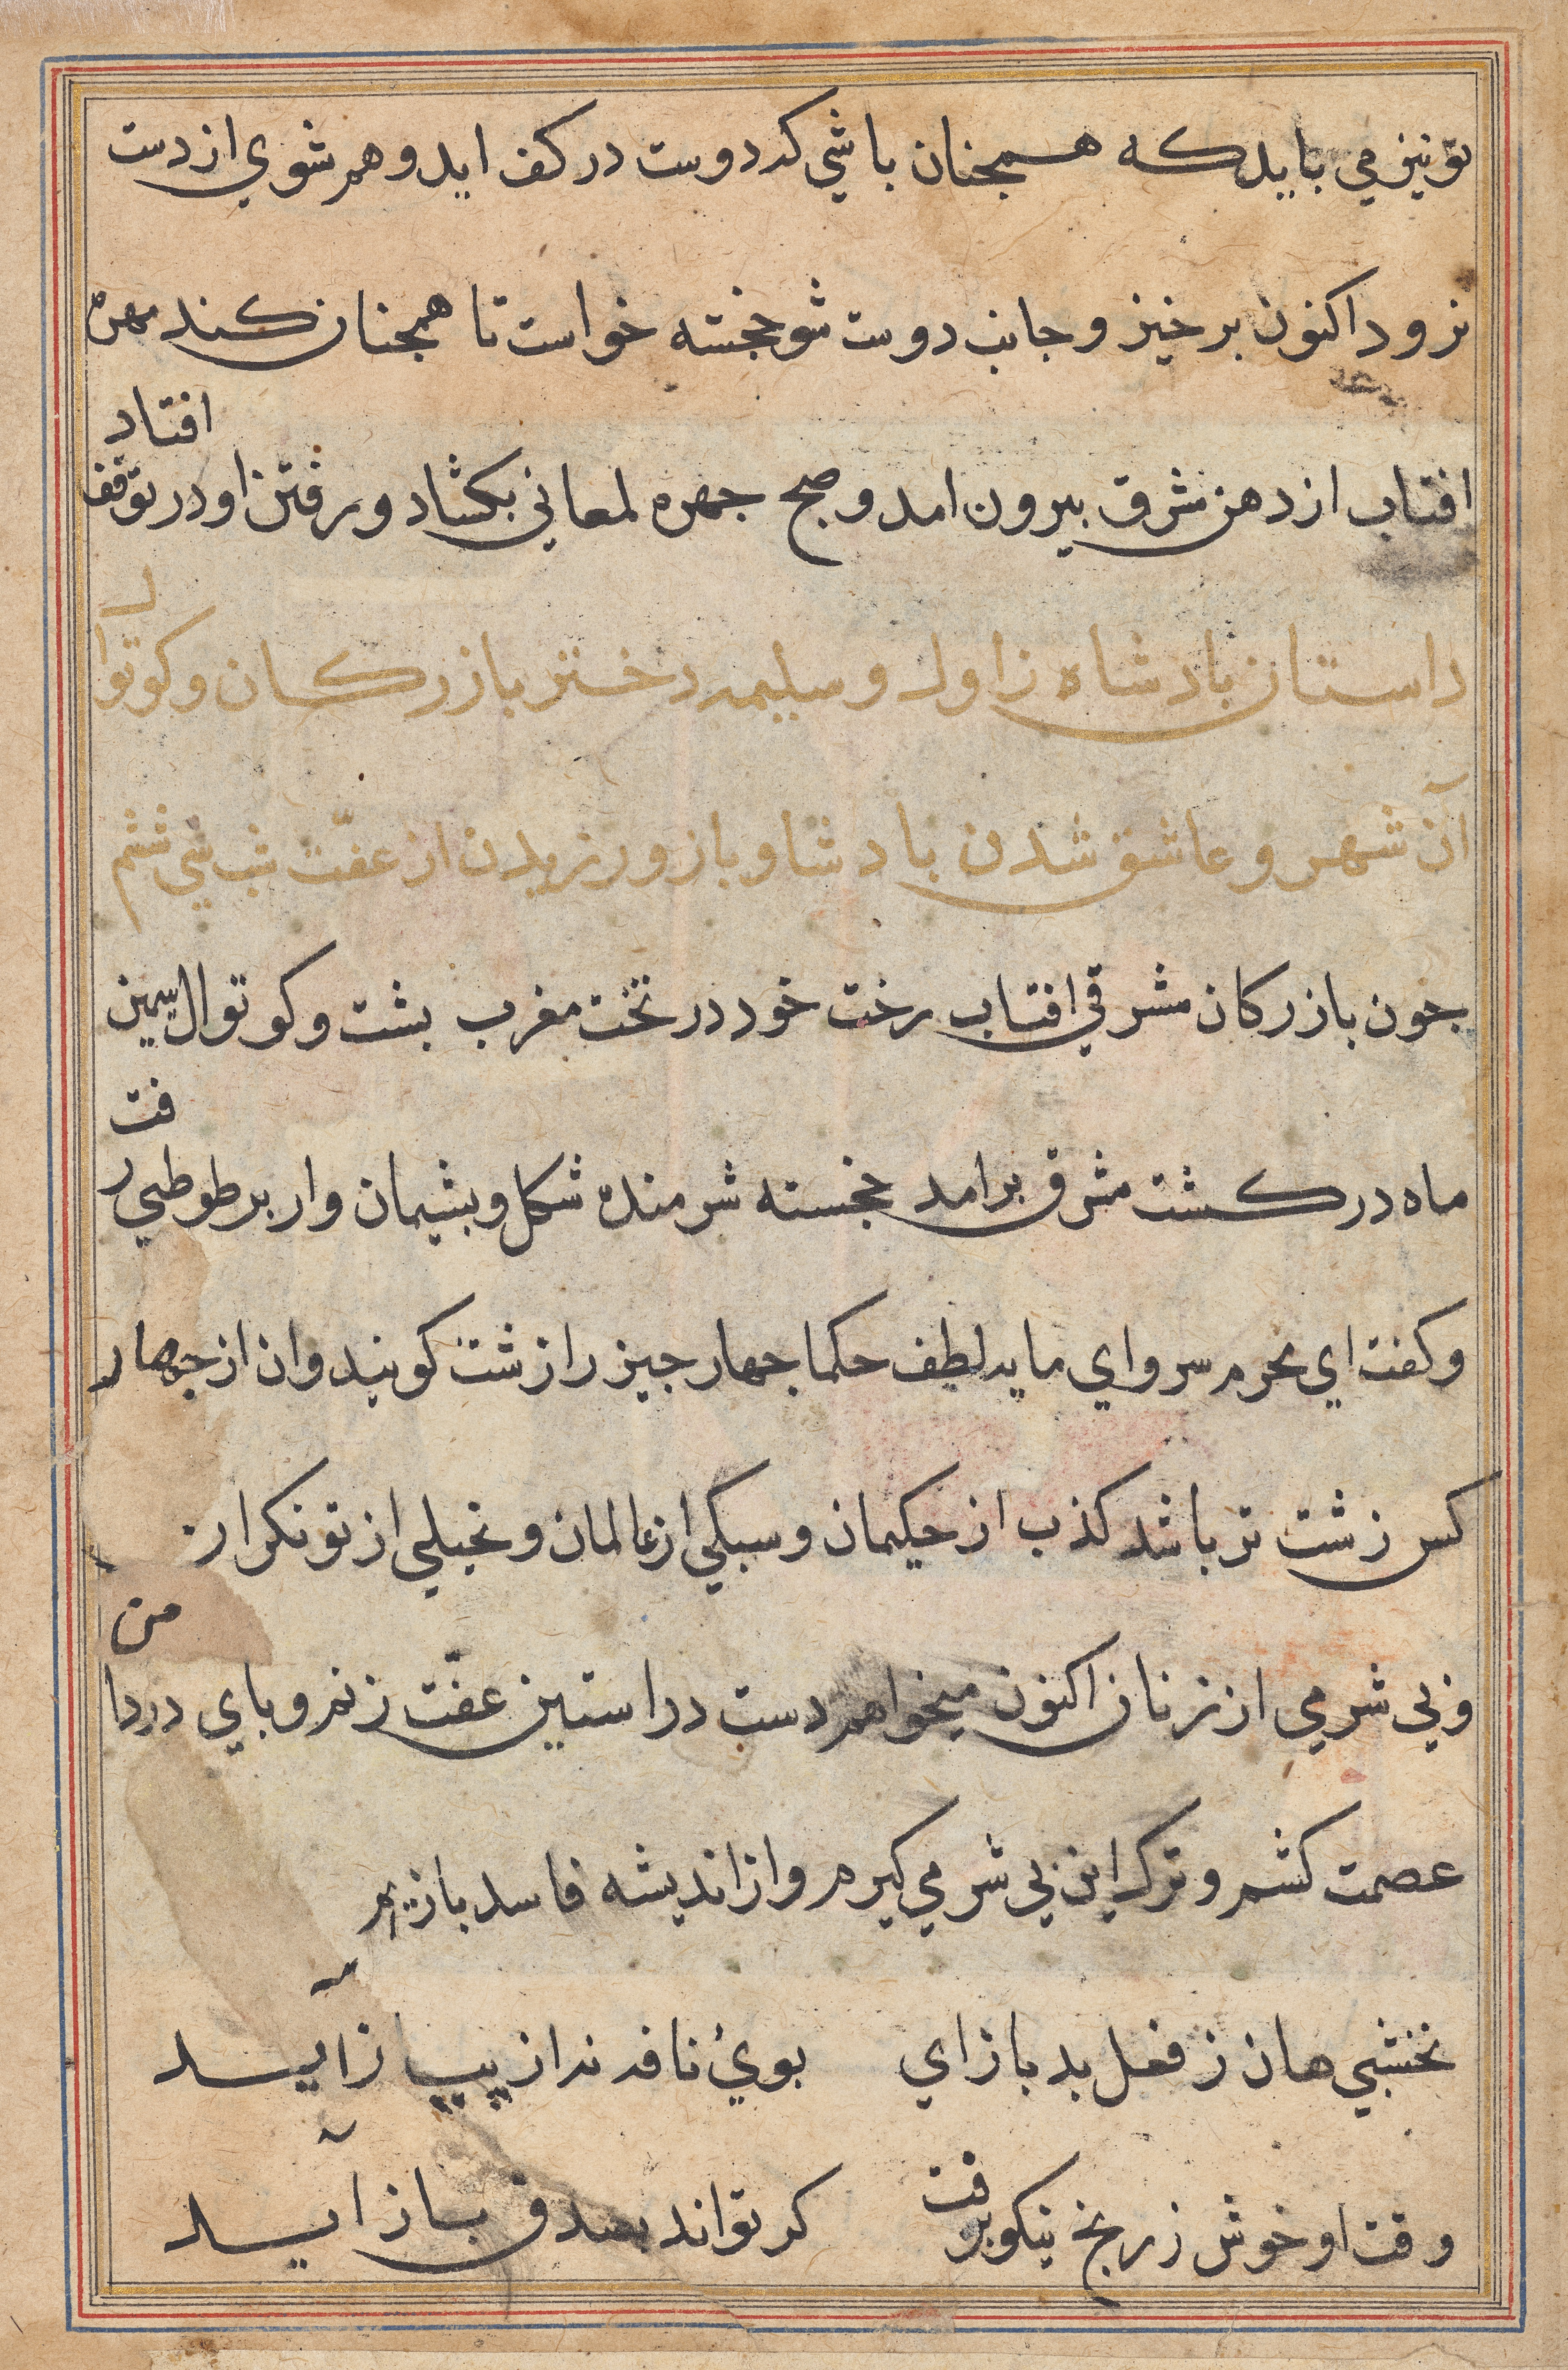 تو نیز می باید که همجنان باشی که دوست در کف اید و هم شوی از دست
نرود اکنون برخیز و جانب دوست شو خجسته خواست تا همجنان کند مهره
افتاد
افتاب از دهن مشرق بیرون امد و صبح جهره لمعانی بکشاد و رفتن او در توقف
داستان بادشاه زاول و سلیمه دختر بازرکان و کوتوال
آن شهر و عاشق شدن بادشا و باز ورزیدن از عفّت شب سی ششم
جون بازرکان مشرقی افتاب رخت خود در تخت مغرب بشت و کوتوال سیمین
فت
ماه در کشت مشرق برامد خجسته شرمنده شکل و بشیمان وار بر طوطی ر
و کفت ای محرم سر و ای مایه لطیف حکما جهار جیز را زشت کویند و ان از جهار
کس زشت تر باشد کذب از حکیمان و سبکی از عالمان و بخیلی از تونکران
من
و بی شرمی از زنان اکنون میخواهم دست در استین عفّت زنم و بای در دا
عصمت کشم و ترک این بی شرمی کیرم و از اندیشه فاسد باز ایم
نخشبی هان ز فعل بد باز ای بوی نافه نه از پیاز آید
وقت او خوش ز رنج نیکو برفت کر تواند بصدق باز آید